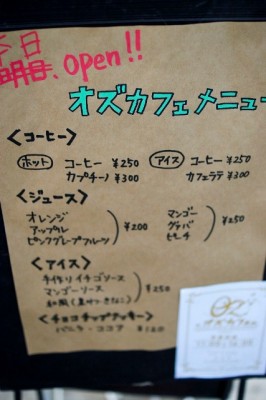 今日
明日、open!!
オズカフェメニュー
＜コーヒー＞
ホット コーヒー ¥250
カプチーノ ¥300
アイス コーヒー ¥250
カフェラテ ¥300
＜ジュース＞
オレンジ
アップル
ピンクグレープフルーツ
¥200
マンゴー
グァバ
ピーチ
¥250
＜アイス＞
手作りイチゴソース
マンゴーソース
¥250
＜チョコチップクッキー＞
バニラ・ココア ¥120
OZ
オズカフェ